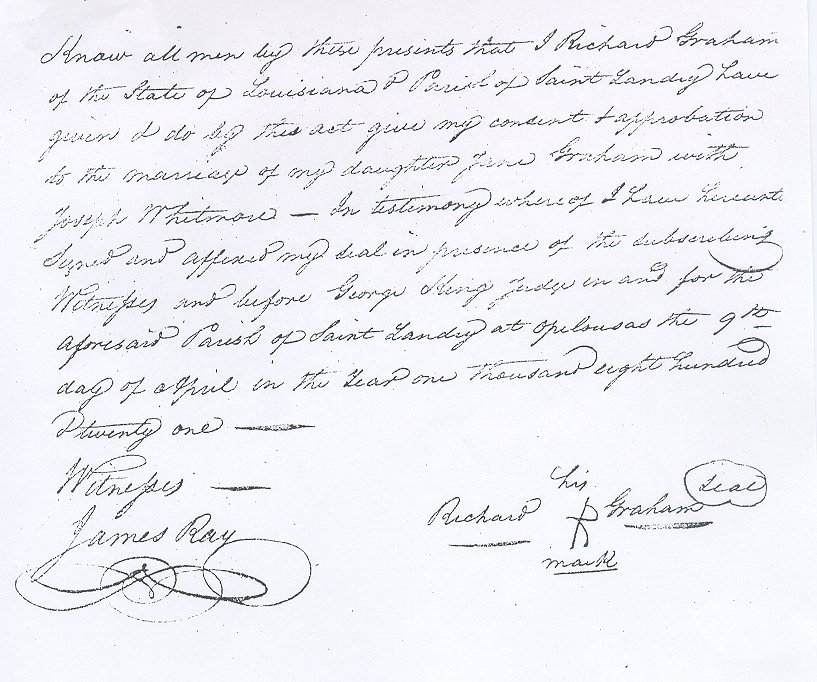 Know all men by these presents that I Richard Graham
of the State of Louisiana & Parish of Saint Landry have
given & do by this act give my consent & approbation
to the marriage of my daughter Jane Graham with
Joseph Whitmore — In testimony where of I have hereunto
Signed and affixed my seal in presence of the subscribing
Witnesses and before George King Judge in and for the
aforesaid Parish of Saint Landry at Opelousas the 9th
day of April in the Year one thousand eight hundred
& twenty one —
Witnesses —
his
Seal
Richard R Graham
James Ray
mark